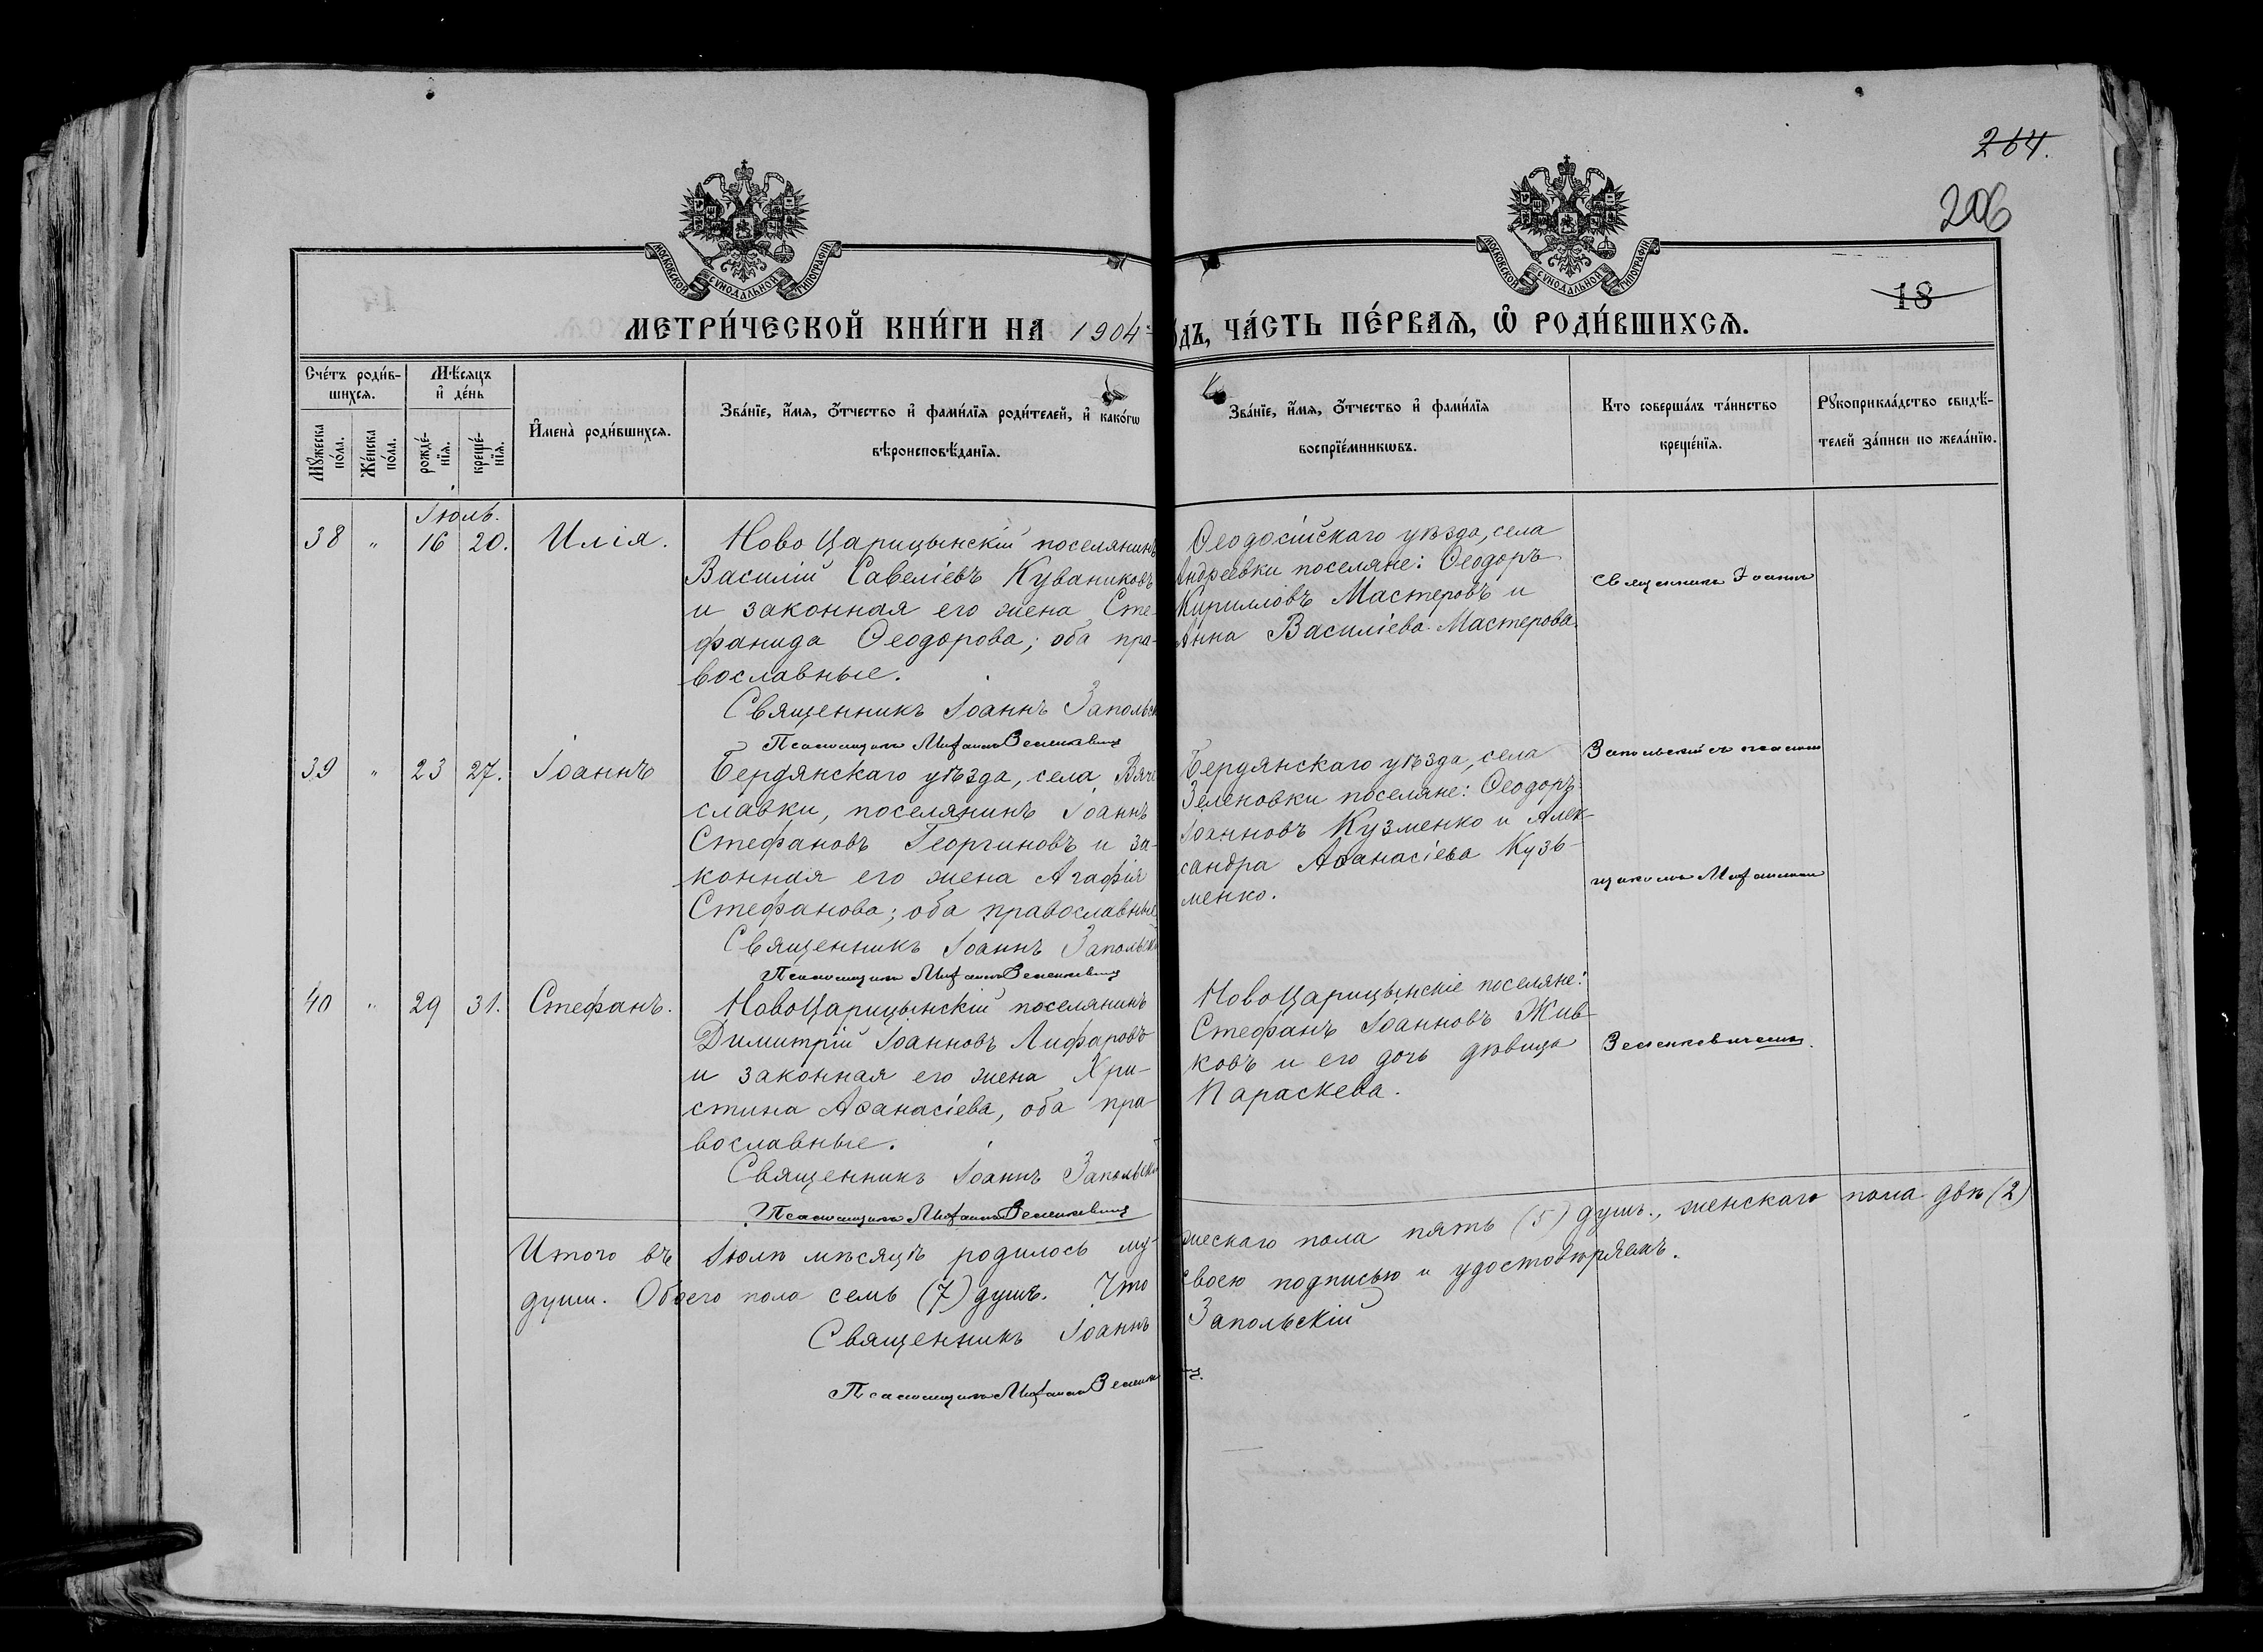 264.
206
18
МОСКОВСКОЙ СѴНОДАЛЬНОЙ ТИПОГРАФІИ
МОСКОВСКОЙ СѴНОДАЛЬНОЙ ТИПОГРАФІИ
МЕТРИ́ЧЕСКОЙ КНИ́ГИ НА 1904
ОДЪ, ЧА́СТЬ ПЕ́РВАѦ, Ѽ РОДИ́ВШИХСѦ.
Сче́тъ роди́в-
шихсѧ.
Мѣ́сѧцъ
и҆ де́нь
Мꙋ́жеска по́ла.
Же́нска по́ла.
рожде́-
нїѧ.
креще́-
нїѧ.
И҆мена̀ роди́вшихсѧ.
Зва́нїе, и҆́мѧ, ѻ҆́тчество и҆ фами́лїѧ роди́телей, и҆ како́гѡ
вѣроисповѣ́данїѧ.
Зва́нїе, и҆́мѧ, ѻ҆́тчество и҆ фами́лїѧ
воспрїе́мникѡвъ.
Кто соверша́лъ та́инство
креще́нїѧ.
Рꙋкоприкла́дство свидѣ́-
телей за́писи по жела́нїю.
Іюль.
38 " 16 20. Илія.
Ново Царицынскій поселянинъ
Василій Савеліевъ Куваниковъ
и законная его жена Сте-
фанида Ѳеодорова; оба пра-
вославные.
Священникъ Іоаннъ Запольск
Псаломщикъ Митрофанъ Зеленкевичъ
Ѳеодосійскаго уѣзда, села
Андреевки поселяне: Ѳеодоръ
Кирилловъ Мастеровъ и
Анна Василіева Мастерова.
Священникъ Іоаннъ
39 " 23 27. Іоаннъ
Бердянскаго уѣзда, села Вяче
славки, поселянинъ Іоаннъ
Стефановъ Георгиновъ и за-
конная его жена Агафія
Стефанова; оба православные
Священникъ Іоаннъ Запольск
Псаломщикъ Митрофанъ Зеленкевичъ
Бердянскаго уѣзда, села
Зеленовки поселяне: Ѳеодоръ
Іоанновъ Кузменко и Алек-
сандра Аѳанасіева Кузь-
менко.
Запольскій съ псалом
щикомъ
40 " 29 31. Стефанъ.
НовоЦарицынскій поселянинъ
Димитрій Іоанновъ Лифаровъ
и законная его жена Хри-
стина Аѳанасіева, оба пра
вославные.
Священникъ Іоаннъ Запольскі
Псаломщикъ Митрофанъ Зеленкевичъ
НовоЦарицынскіе поселяне:
Стефанъ Іоанновъ Жив-
ковъ и его дочь дѣвица
Параскева.
Зеленкевичемъ.
Итого въ Іюлѣ мѣсяцѣ родилось му-
жескаго пола пять (5) душъ., женскаго пола двѣ (2)
души. Обоего пола семь (7) душъ. Что
своею подписью и удостовѣряемъ.
Священникъ Іоаннъ Запольскій
Псаломщикъ Митрофанъ Зеленк